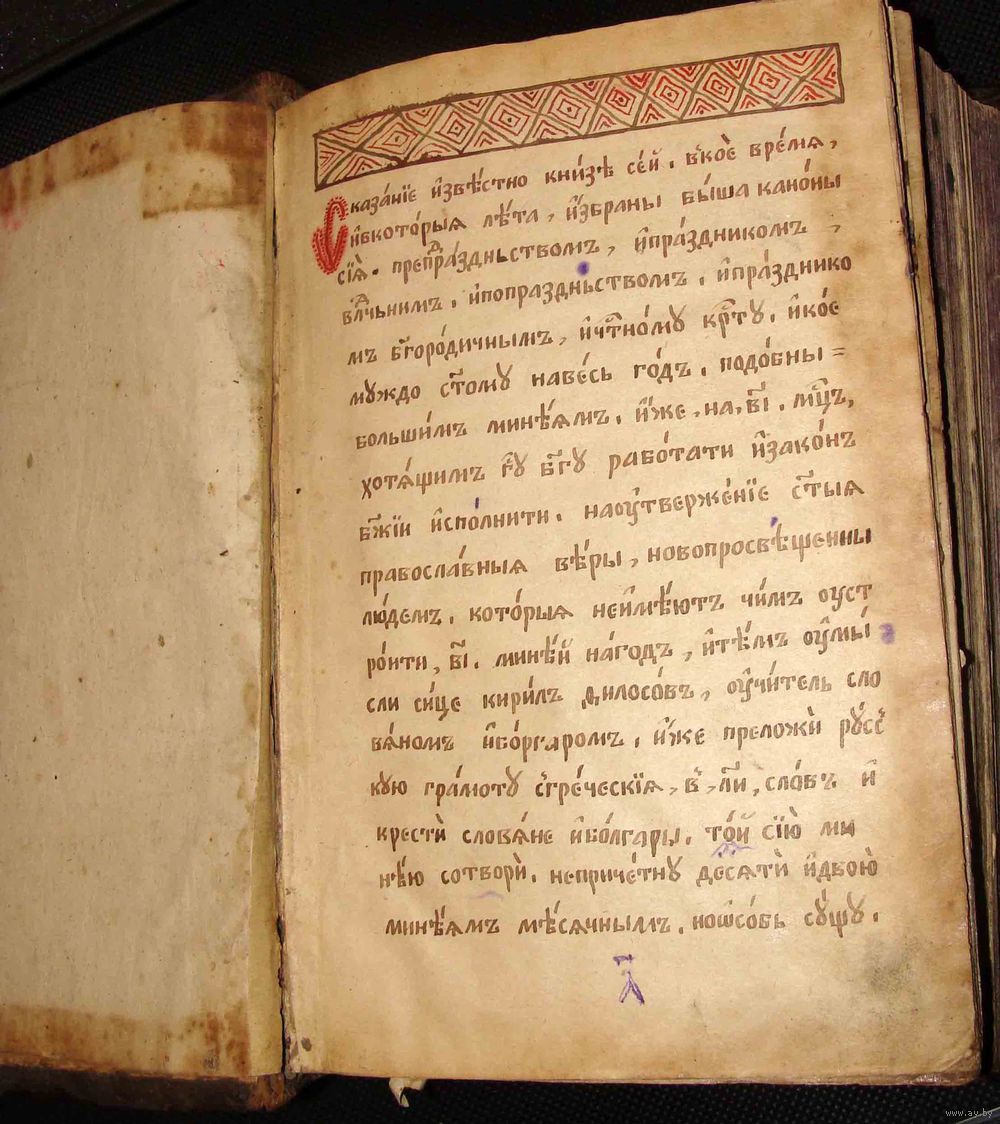 Сказа́нїе и҆звѣ́стно кни́зѣ се́й. в̾ко́е вре́мя,
и҆вкото́рыя лѣ́та, и҆збраны бы́ша кано́ны
сїѧ̀. препра́здньствомъ, и҆пра́здникомъ,
влⷣчьнимъ. и҆попра́здньствомъ. и҆пра́зднико
мъ бг҃оро́дичнымъ, и҆чтⷭ҇но́му крⷭ҇ту. и҆ко́е
муждо ст҃ому наве́сь го́дъ. подо́бны =
больши́мъ минѣ́ямъ. и҆́же, на, в҃і. мцⷭ҇ъ,
хотѧ́щимъ гв҃у бг҃у рабо́тати и҆зако́нъ
бж҃їи и҆спо́лнити. наоу҆твержде́нїе ст҃ыя
правосла́вныя вѣ́ры, новопросвѣ́щенны
лю́демъ. кото́рыя неи҆мѣ́ютъ чи́мъ оуст
ро́ити, в҃і. минѣ́й на́годъ, и҆тѣ́мъ оу҆мы́
сли си́це кири́лъ филосо́въ, оу҆чи́тель сло
вяномъ и҆бо́ргаромъ. и҆́же преложѝ ру́сс
кую гра́моту з̾гре́ческїя, в̾, л҃и, сло́въ и҆
крестѝ словѧ́не и҆бо́лгары. то́й сїю̀ ми
нѣ́ю сотворѝ. неприче́тну десятѝ и҆двою̀
минѣ́ямъ мѣ́сячнымъ. ноѡ҆со́бь су́щу.
а҃
www.ay.by